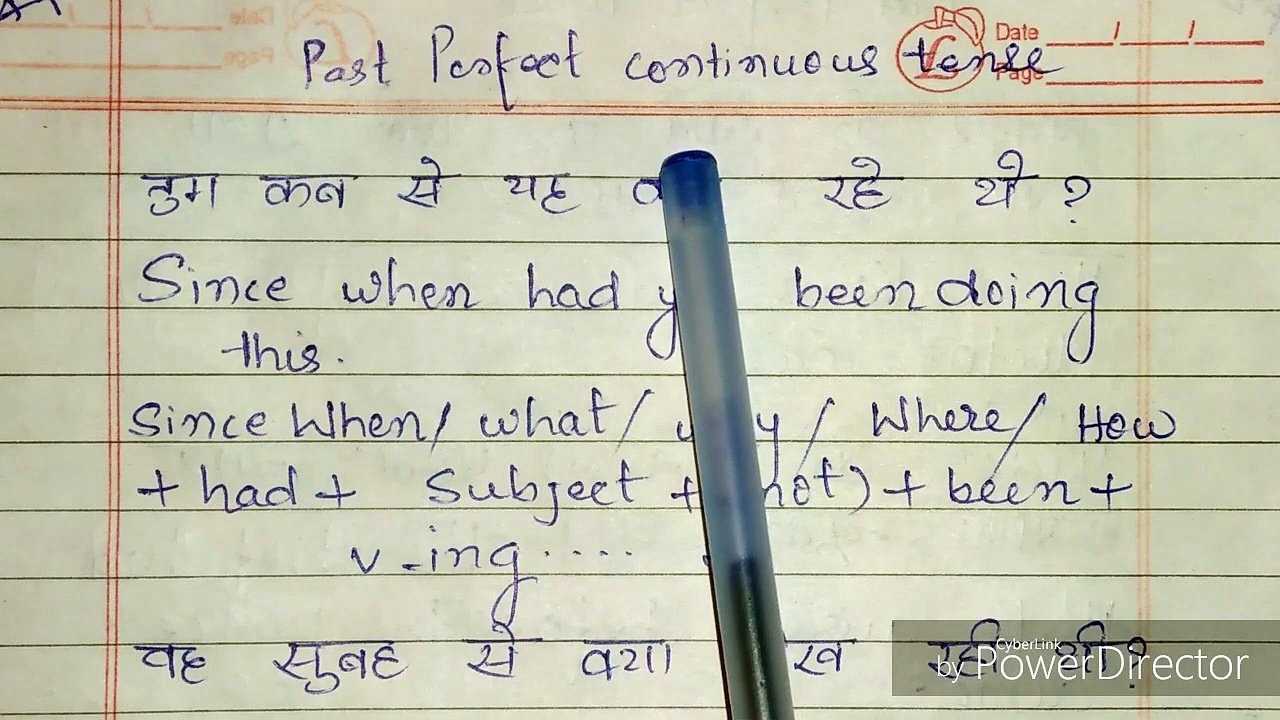 Date
Page
Past Perfect continuous tense
तुम कब से यह रहे थे ?
Since when had been doing
this.
Since When/ what/ / Where/ How
+ had + Subject + not) + been +
v-ing ....
वह सुबह से क्या रही थी ?
CyberLink
by PowerDirector